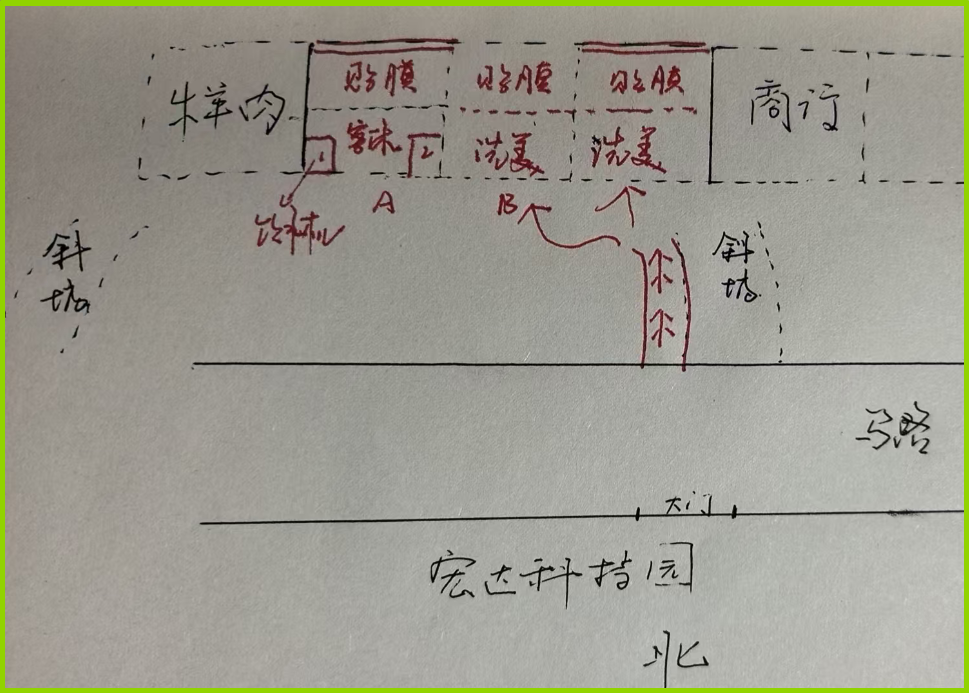 牛羊肉
贴膜 贴膜 贴膜
商行
1 客休 2
洗美 洗美
饮料机
A
B
斜坊
斜坊
马路
大门
宏达科技园
北